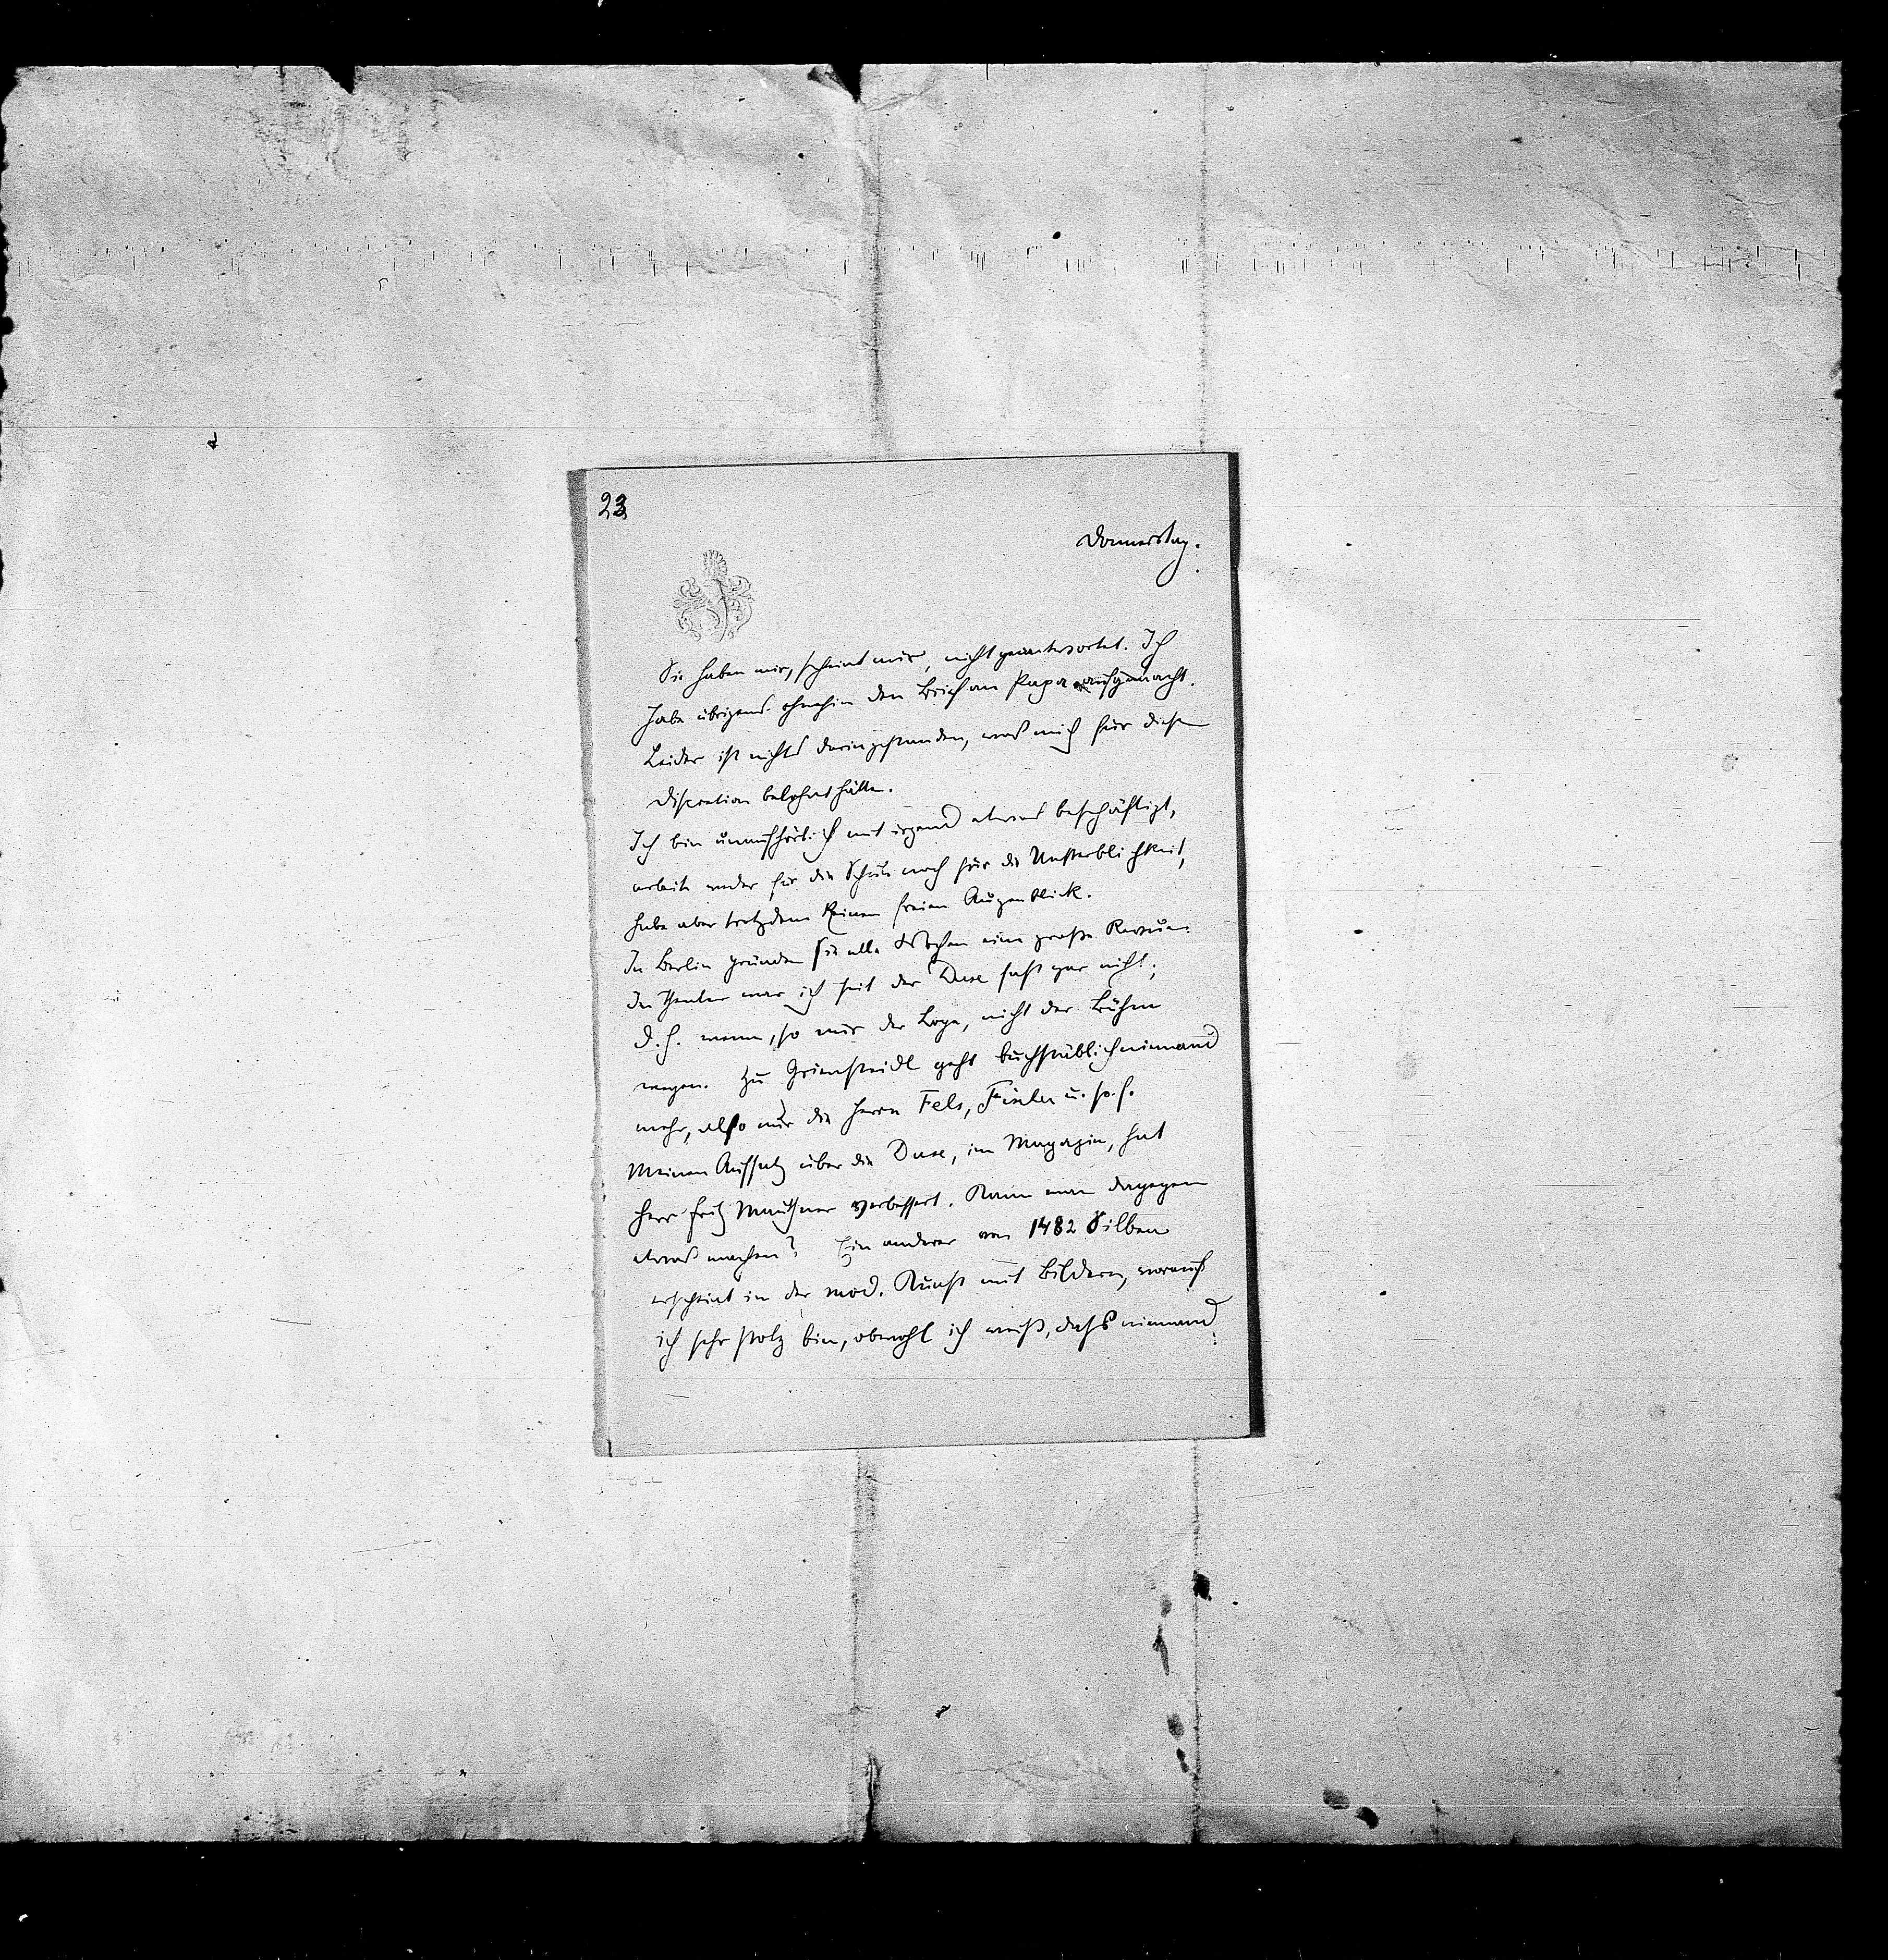 23
Donnerstag.
Sie haben mir, scheint mir, nicht geantwortet. Ich
habe übrigens ohnehin den Brief an Papa aufgemacht.
Leider ist nichts daringestanden, was mich für diese
Discretion belohnt hätte.
Ich bin unaufhörlich mit irgend etwas beschäftigt,
arbeite weder für die Schule noch für die Unsterblichkeit,
habe aber trotzdem keinen freien Augenblick.
In Berlin gründen sie alle Wochen eine große Revue.
Im Theater war ich seit der Duse fast gar nicht;
d. h. wenn, so nur der Loge, nicht der Bühne
wegen. Zu Griensteidl geht buchstäblich niemand
mehr, also nur die Herrn Fels, Fischer u. s. f.
Meinen Aufsatz über die Duse, im Magazin, hat
Herr Fritz Mauthner verbessert. Kann man dagegen
etwas machen? Ein anderer von 1482 Silben
erscheint in der mod. Kunst mit Bildern, worauf
ich sehr stolz bin, obwohl ich weiß, dass niemand